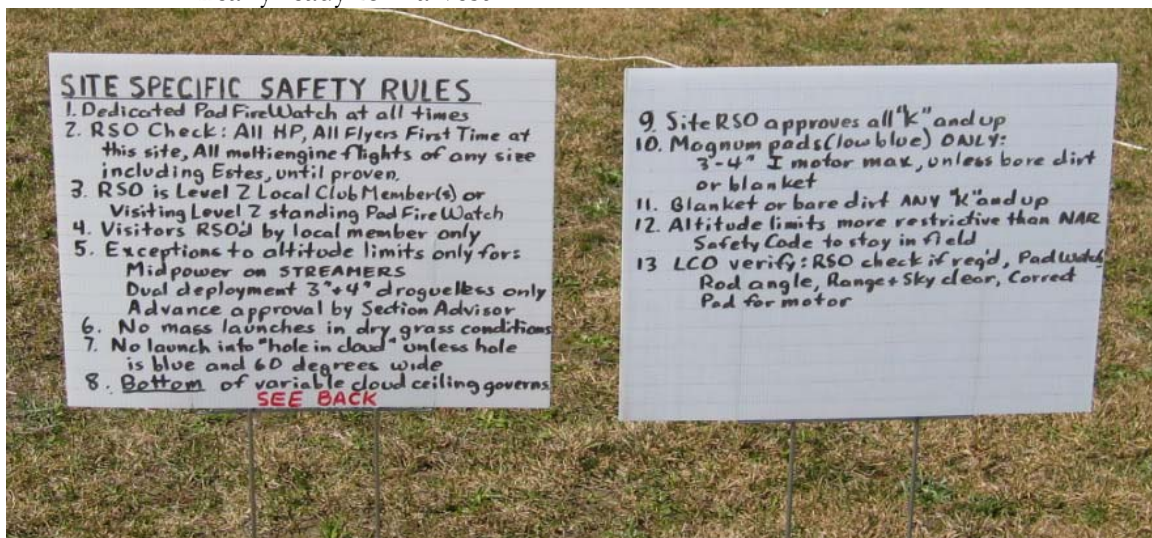 SITE SPECIFIC SAFETY RULES
1. Dedicated Pad FireWatch at all times
2. RSO Check: All HP, All Flyers First Time at
this site, All multiengine flights of any size
including Estes, until proven.
3. RSO is Level 2 Local Club Member(s) or
Visiting Level 2 standing Pad Fire Watch
4. Visitors RSO'd by local member only
5. Exceptions to altitude limits only for:
Midpower on STREAMERS
Dual deployment 3"+4" drogueless only
Advance approval by Section Advisor
6. No mass launches in dry grass conditions
7. No launch into "hole in cloud" unless hole
is blue and 60 degrees wide
8. Bottom of variable cloud ceiling governs
SEE BACK
9. Site RSO approves all "K" and up
10. Magnum pads (low blue) ONLY:
3-4" I motor max, unless bare dirt
or blanket
11. Blanket or bare dirt ANY "K" and up
12. Altitude limits more restrictive than NAR
Safety Code to stay in field
13 LCO verify: RSO check if req'd, Pad Watch,
Rod angle, Range + Sky clear, Correct
Pad for motor